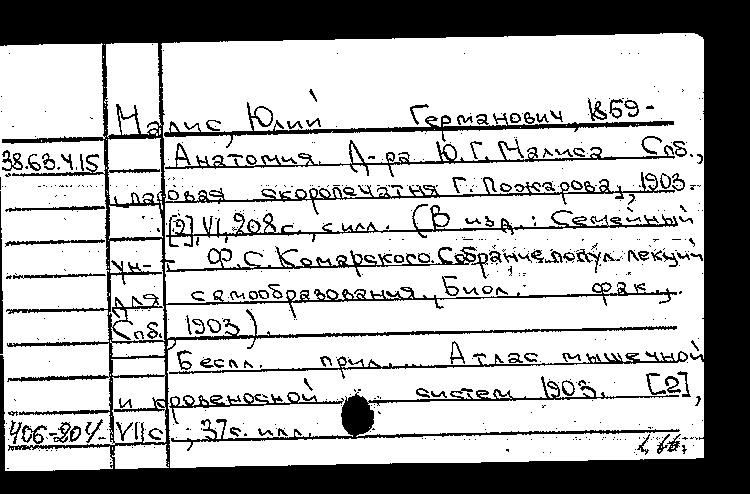 Малис, Юлий Германович, 1859-
38.63.4.15 Анатомия Д-ра Ю.Г. Малиса Спб.,
паровая скоропечатня Г. Пожарова, 1903.
[2], VI, 208 с., с илл. (В изд.: Семейный
ун-т Ф.С. Комарского. Собрание попул. лекций
для самообразования. Биол. фак.,
Спб., 1903).
Беспл. прил.... Атлас мышечной
и кровеносной систем 1903. [2],
406-204. VII с., 37 с. илл.